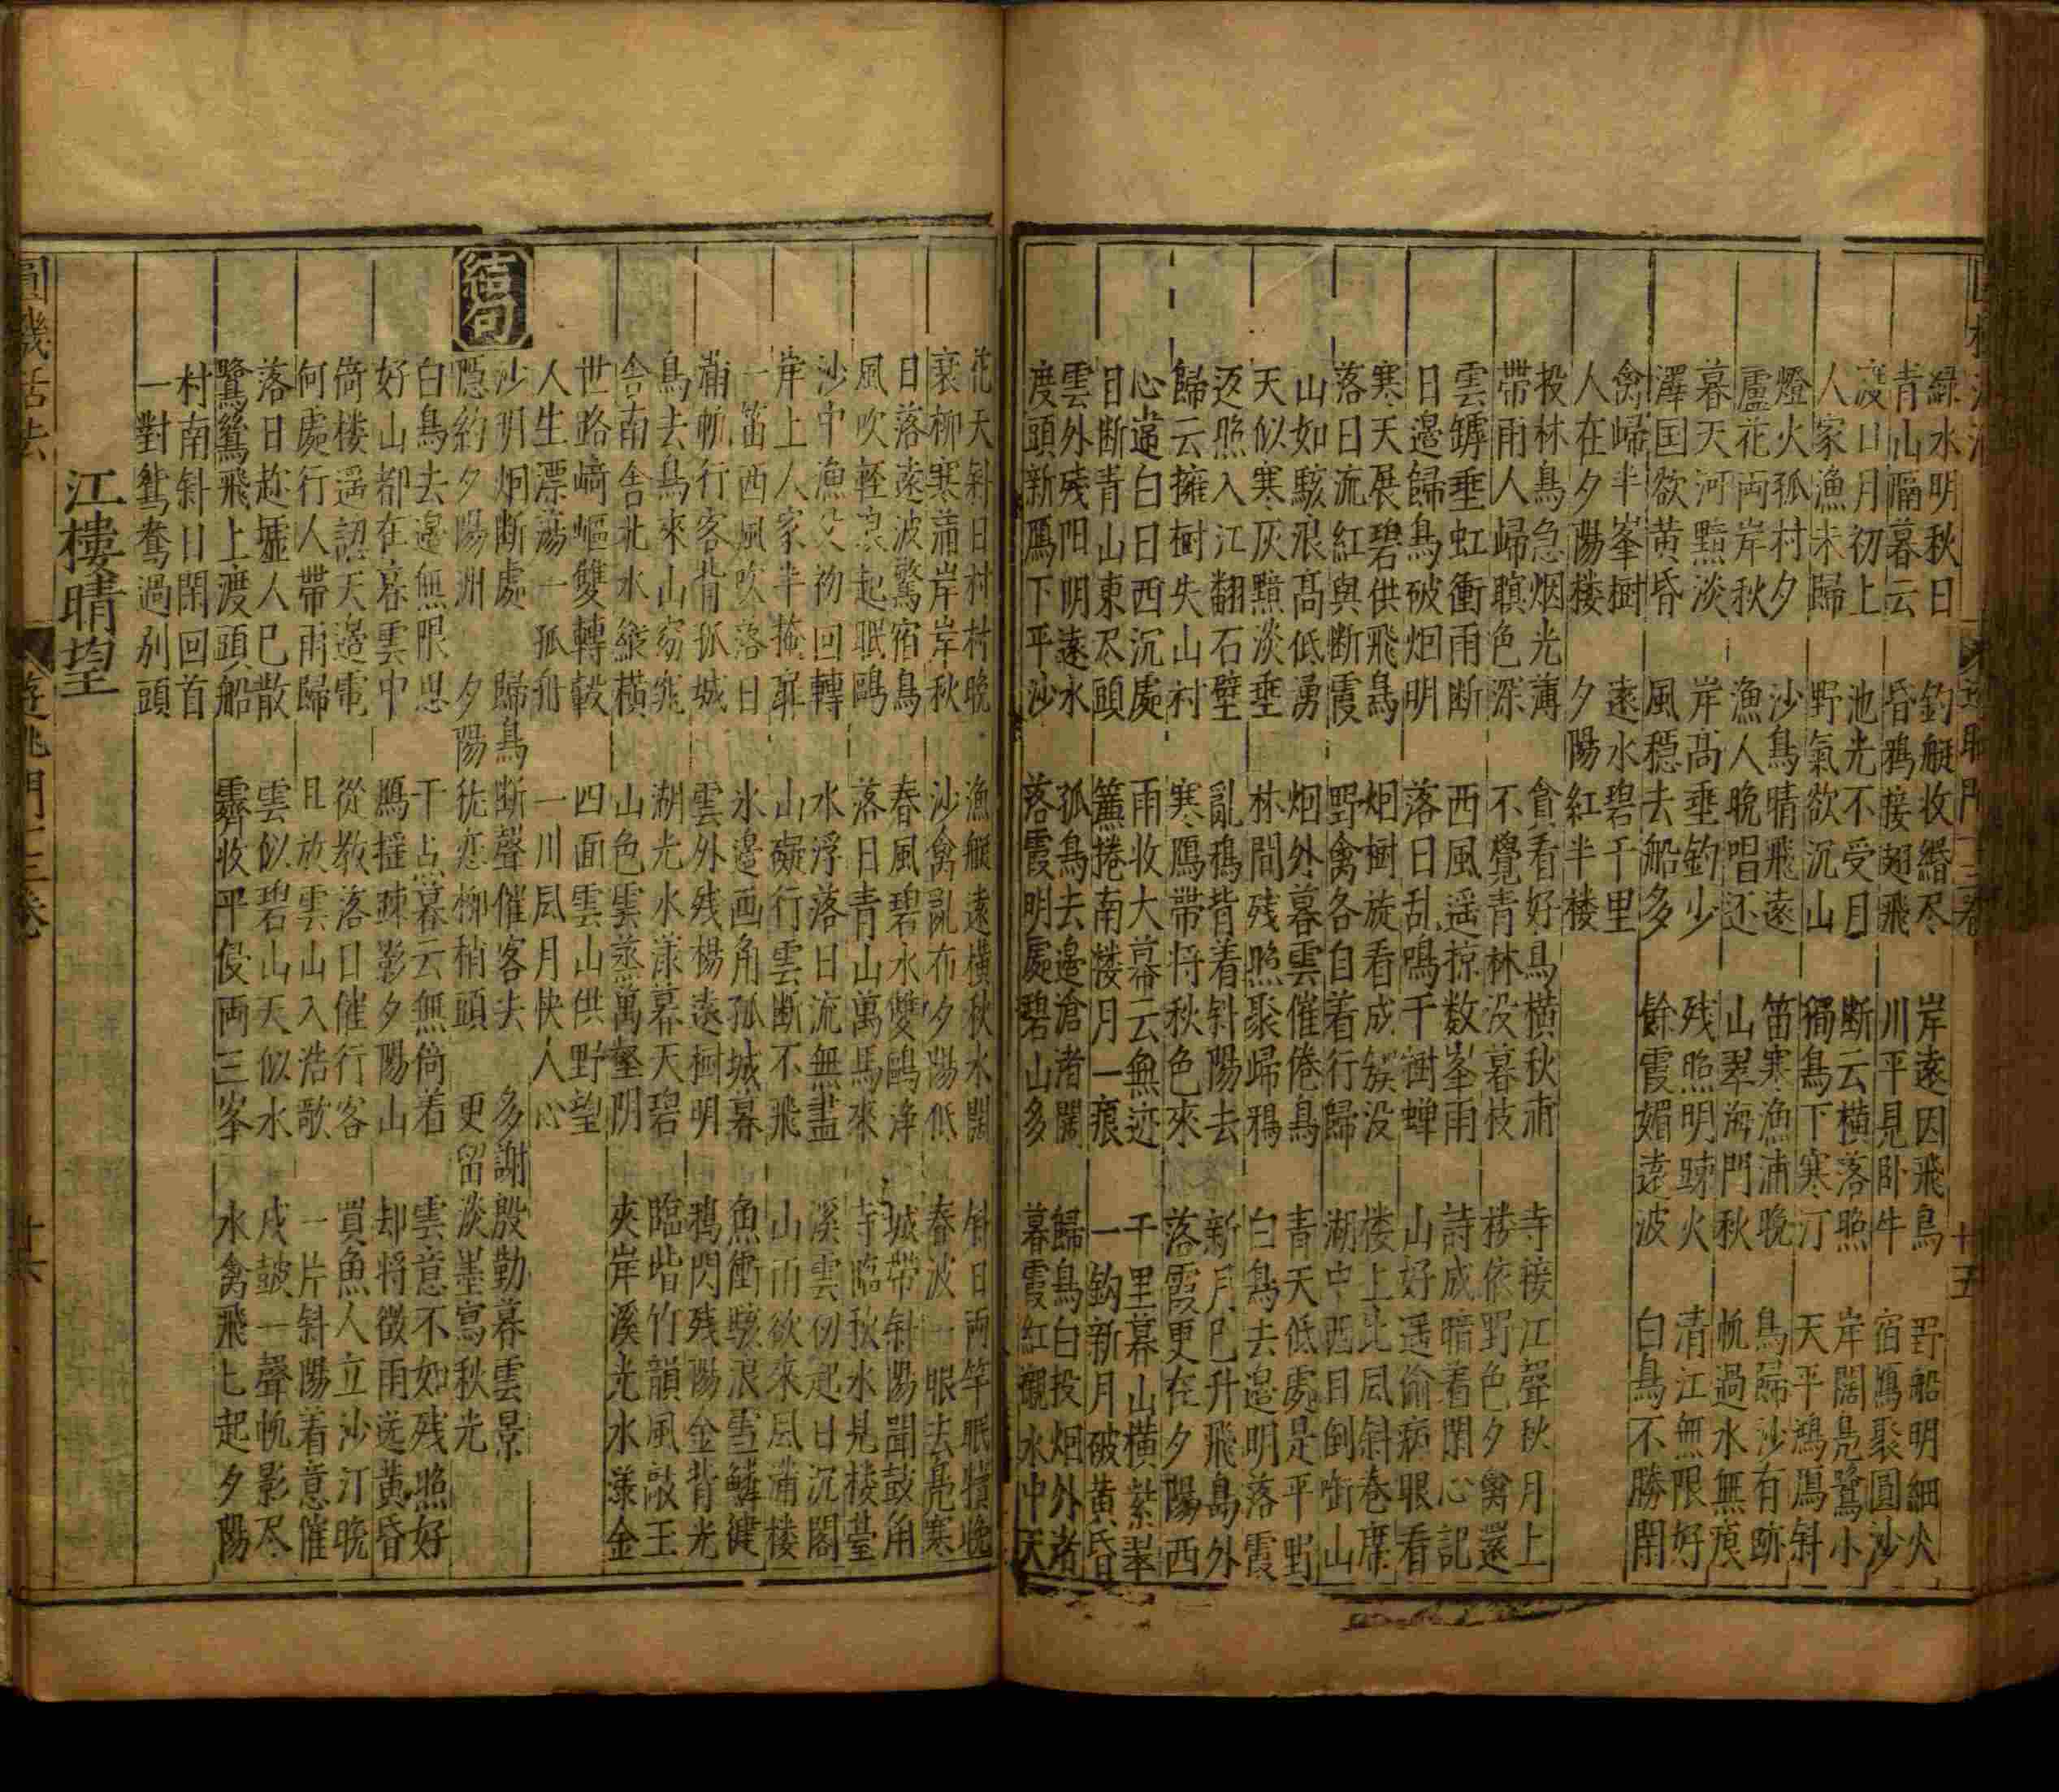 緑水明秋日 釣艇收緡尽 岸遠因飛鳥 野船明細火
青山隔暮云 昏鴉接翅飛 川平見卧牛 宿鴈聚圓沙
渡口月初上 池光不受月 断云横落照 岸闊鳧鷺小
人家漁未歸 野氣欲沉山 獨鳥下寒汀 天平鵝鴈斜
燈火孤村夕 沙鳥晴飛遠 笛寒漁浦晚 鳥歸沙有跡
蘆花両岸秋 漁人晚唱还 山翠海門秋 帆過水無痕
暮天河黯淡 岸高垂釣少 残照明踈火 清江無限好
澤国欲黄昏 風穏去船多 餘霞媚遠波 白鳥不勝閑
禽歸半峯樹 遠水碧千里
人在夕陽楼 夕陽紅半楼
投林鳥急烟光薄 貪看好鳥横秋浦 寺接江聲秋月上
帶雨人歸暝色深 不覺青林没暮枝 楼依野色夕禽還
雲罅垂虹衝雨断 西風遥掠数峯雨 詩成暗着閑心記
日邉歸鳥破烟明 落日乱鳴千樹蝉 山好遥偷病眼看
寒天展碧供飛鳥 烟樹旋看成簇没 楼上北風斜卷席
落日流紅與断霞 野禽各自着行歸 湖中西日倒啣山
山如駭浪高低湧 烟外暮雲催倦鳥 青天低處是平野
天似寒灰黯淡垂 林間残照聚歸鴉 白鳥去邉明落霞
返照入江翻石壁 亂鴉背着斜陽去 新月已升飛鳥外
歸云擁樹失山村 寒鴈帶将秋色來 落霞更在夕陽西
心違白日西沉處 雨收大幕云無迹 千里暮山横紫翠
目断青山東尽頭 簾捲南楼月一痕 一鈎新月破黄昏
雲外残阳明遠水 孤鳥去邉滄渚闊 歸鳥白投烟外渚
度頭新鴈下平沙 落霞明處碧山多 暮霞紅襯水中天
十五
花天斜日村村晚 漁艇遠横秋水闊 斜日両竿眠犢晚
衰柳寒蒲岸岸秋 沙禽亂布夕陽低 春波一眼去鳧寒
日落遠波驚宿鳥 春風碧水雙鷗浄 城帶斜陽聞鼓角
風吹輕浪起眠鷗 落日青山萬馬來 寺臨秋水見楼臺
沙中漁父初回轉 水浮落日流無盡 溪雲初起日沉閣
岸上人家半掩扉 山礙行雲断不飛 山雨欲來風滿楼
一笛西風吹落日 水邉画角孤城暮 魚衝駭浪雪鱗健
蒲帆行客背孤城 雲外残楊遠樹明 鴉閃残陽金背光
鳥去鳥來山窈窕 湖光水漾暮天碧 臨階竹韻風敲玉
舎南舎北水縱横 山色雲蒸萬壑阴 夾岸溪光水漾金
世路崎嶇雙轉轂 四面雲山供野望
人生漂蕩一孤舟 一川風月快人心
結句
沙明烟断處 歸鳥断聲催客去 多謝殷勤暮雲景
隱約夕陽洲 夕陽猶恋柳梢頭 更留淡墨寫秋光
白鳥去邉無限思 干点暮云無倚着 雲意不如残照好
好山都在暮雲中 鴈搓踈影夕陽山 却将微雨送黄昏
倚楼遥認天邉電 從教落日催行客 買魚人立沙汀晚
何處行人帶雨歸 且放雲山入浩歌 一片斜陽着意催
落日趂墟人已散 雲似碧山天似水 戍鼓一聲帆影尽
鷺鷥飛上渡頭船 霽收平侵両三峯 水禽飛起夕陽
村南斜日閑回首
一對鴛鴦過別頭
江樓晴望
圓機活法 遊眺門十三卷 十六